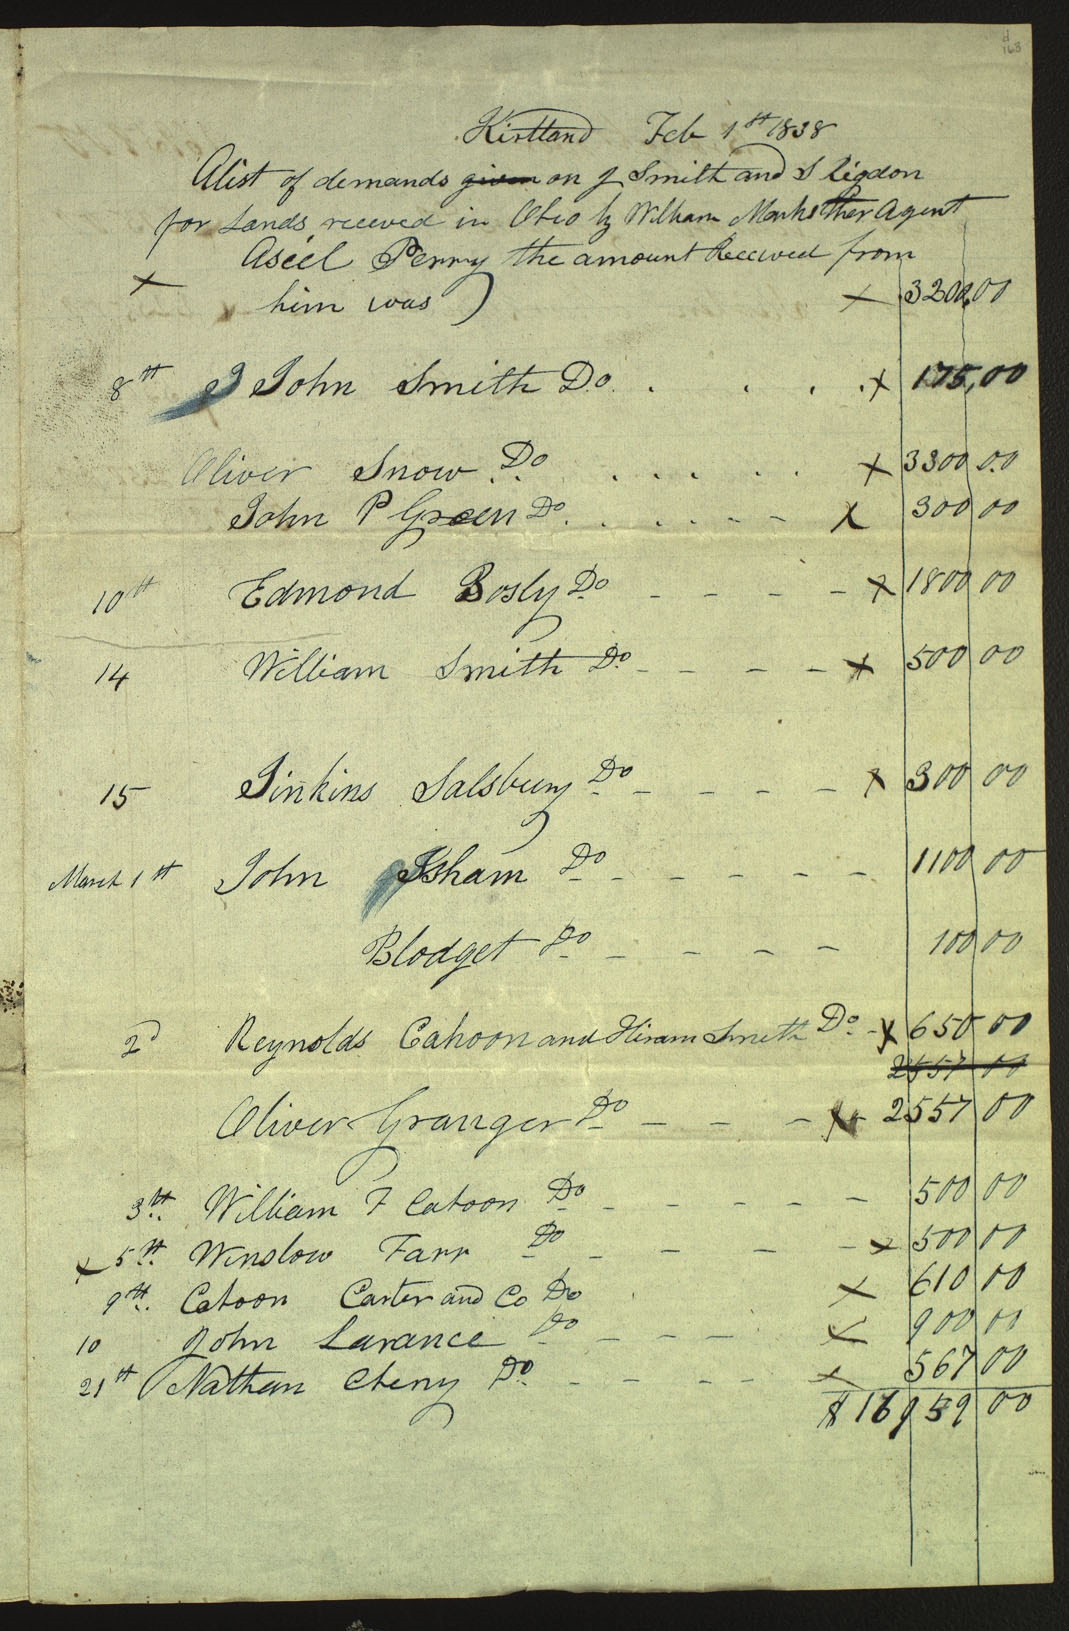 d
163
Kirtland Feb 1st 1838
A list of demands given on J Smith and S Rigdon
for Lands receved in Ohio by William Marks ther Agent
Aseél Perry the amount Received from
x him was ) x 3200,00
8th J John Smith Do . . . . x 175,00
Oliver Snow Do . . . . . x 3300 00
John P Green Do . . . . - - - x 300 00
10th Edmond Bosly Do - - - - x 1800 00
14 William Smith Do - - - - x 500 00
15 Jinkins Salsbury Do - - - - x 300 00
March 1st John Isham Do - - - - - 1100 00
Blodget Do - - - - 100 00
2d Reynolds Cahoon and Hiram Smith Do - x 650 00
2557 00
Oliver Granger Do - - - x 2557 00
3th William F Cahoon Do - - - - - 500 00
x 5th Winslow Farr Do - - - - x 500 00
9th Cahoon Carter and Co Do x 610 00
10 John Larance Do - - - x 900 00
21th Nathan Cheny Do - - - - x 567 00
$ 16959 00